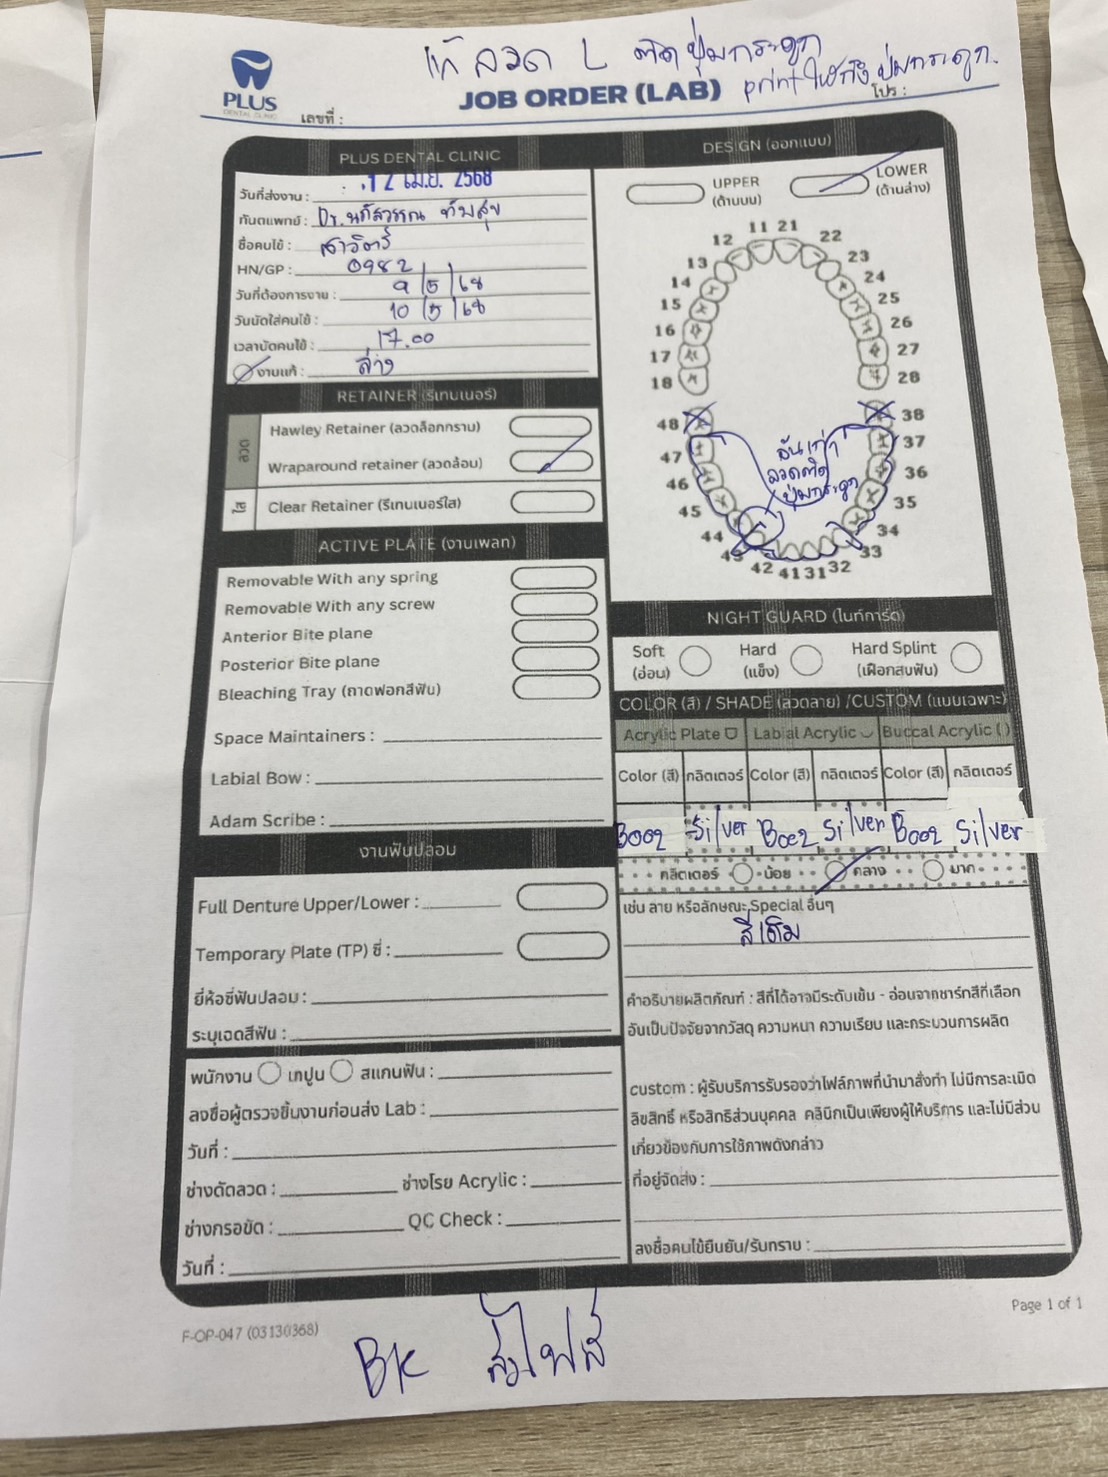 แก้ ลวด L ติดปุ่มกระดูก
print ให้ถึงปุ่มกระดูก.
PLUS
DENTAL CLINIC
JOB ORDER (LAB)
เลขที่ :
โปร :
PLUS DENTAL CLINIC
วันที่ส่งงาน : 12 เม.ย. 2568
ทันตแพทย์ : Dr.นภัสวรรณ ทับสุข
ชื่อคนไข้ : สาวิตรี
HN/GP : 0982
วันที่ต้องการงาน : 9/5/68
วันนัดใส่คนไข้ : 10/5/68
เวลานัดคนไข้ : 17.00
งานแก้ : ล่าง
RETAINER (รีเทนเนอร์)
ลวด
Hawley Retainer (ลวดล็อกกราม)
Wraparound retainer (ลวดล้อม)
ใส
Clear Retainer (รีเทนเนอร์ใส)
ACTIVE PLATE (งานเพลท)
Removable With any spring
Removable With any screw
Anterior Bite plane
Posterior Bite plane
Bleaching Tray (ถาดฟอกสีฟัน)
Space Maintainers :
Labial Bow :
Adam Scribe :
งานฟันปลอม
Full Denture Upper/Lower :
Temporary Plate (TP) ซี่ :
ยี่ห้อซี่ฟันปลอม :
ระบุเฉดสีฟัน :
พนักงาน เทปูน สแกนฟัน :
ลงชื่อผู้ตรวจชิ้นงานก่อนส่ง Lab :
วันที่ :
ช่างดัดลวด : ช่างโรย Acrylic :
ช่างกรอขัด : QC Check :
วันที่ :
DESIGN (ออกแบบ)
UPPER
(ด้านบน)
LOWER
(ด้านล่าง)
11 21
12 22
13 23
14 24
15 25
16 26
17 27
18 28
48 38
47 37
46 36
45 35
44 34
43 33
42 41 31 32
อันเก่า
ลวดติด
ปุ่มกระดูก
NIGHT GUARD (ไนท์การ์ด)
Soft
(อ่อน)
Hard
(แข็ง)
Hard Splint
(เฝือกสบฟัน)
COLOR (สี) / SHADE (ลวดลาย) /CUSTOM (แบบเฉพาะ)
Acrylic Plate Labial Acrylic Buccal Acrylic ( )
Color (สี) กลิตเตอร์ Color (สี) กลิตเตอร์ Color (สี) กลิตเตอร์
B002 Silver B002 Silver B002 Silver
กลิตเตอร์ น้อย กลาง มาก
เช่น ลาย หรือลักษณะ Special อื่นๆ
สีเดิม
คำอธิบายผลิตภัณฑ์ : สีที่ได้อาจมีระดับเข้ม - อ่อนจากชาร์ทสีที่เลือก
อันเป็นปัจจัยจากวัสดุ ความหนา ความเรียบ และกระบวนการผลิต
custom : ผู้รับบริการรับรองว่าไฟล์ภาพที่นำมาสั่งทำ ไม่มีการละเมิด
ลิขสิทธิ์ หรือสิทธิส่วนบุคคล คลินิกเป็นเพียงผู้ให้บริการ และไม่มีส่วน
เกี่ยวข้องกับการใช้ภาพดังกล่าว
ที่อยู่จัดส่ง :
ลงชื่อคนไข้ยืนยัน/รับทราบ :
Page 1 of 1
F-OP-047 (03130368)
BK ส่งไฟล์